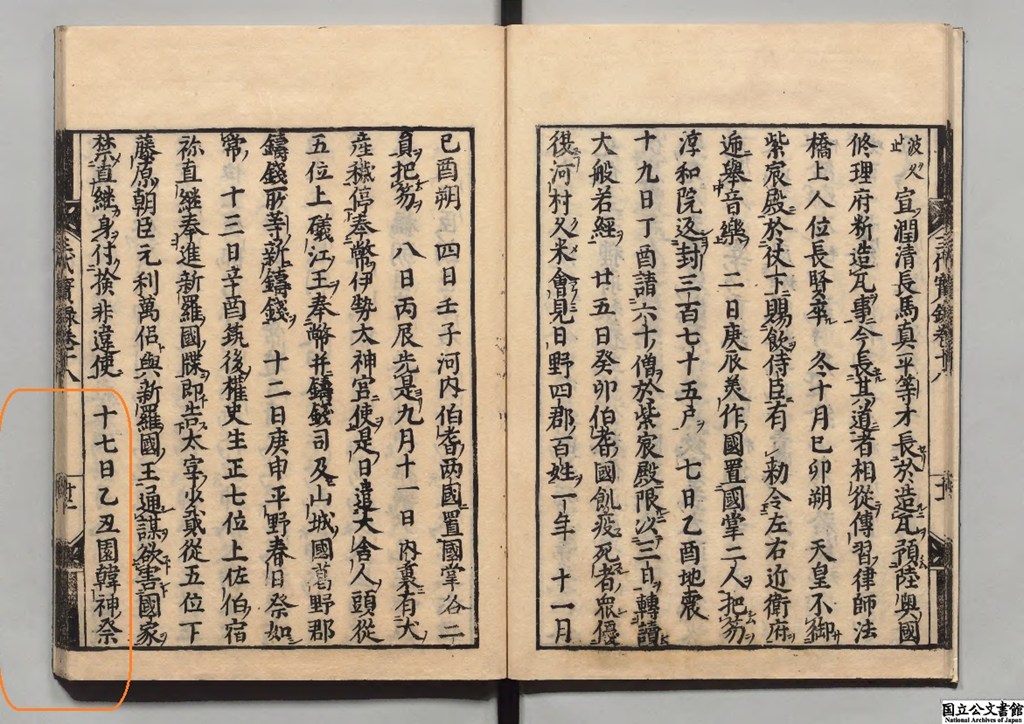 波父
止
宣潤清長馬真平等才長於造瓦預陸奧國
修理府料造瓦事令長其道者相從傳習律師法
橋上人位長賢卒　冬十月己卯朔　天皇不御
紫宸殿於仗下賜飲侍臣有　勅令左右近衛府
遞舉音樂　二日庚辰美作國置國掌二人把笏
淳和院返封三百七十五戶　七日乙酉地震
十九日丁酉請六十僧於紫宸殿限以三日轉讀
大般若經　廿五日癸卯伯耆國飢疫死者眾優
復河村久米會見日野四郡百姓一年　十一月
己酉朔　四日壬子河內伯耆兩國置國掌各二
員把笏　八日丙辰先是九月十一日內裏有犬
產穢停奉幣伊勢太神宮使是日遣大舍人頭從
五位上礒江王奉幣并鑄錢司及山城國葛野郡
鑄錢所等新鑄錢　十二日庚申平野春日祭如
常　十三日辛酉筑後權史生正七位上佐伯宿
祢直繼奉進新羅國牒即告大宰少貳從五位下
藤原朝臣元利萬侶與新羅國王通謀欲害國家
禁直繼身付撿非違使　十七日乙丑園韓神祭
三代實錄卷十八
三代實錄卷十八
国立公文書館
National Archives of Japan